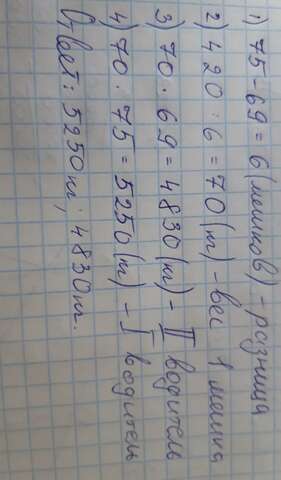 1) 75 - 69 = 6 (мешков) - разница
2) 420 : 6 = 70 (кг) - вес 1 мешка
3) 70 · 69 = 4830 (кг) - II водитель
4) 70 · 75 = 5250 (кг) - I водитель
Ответ: 5250 кг; 4830 кг.